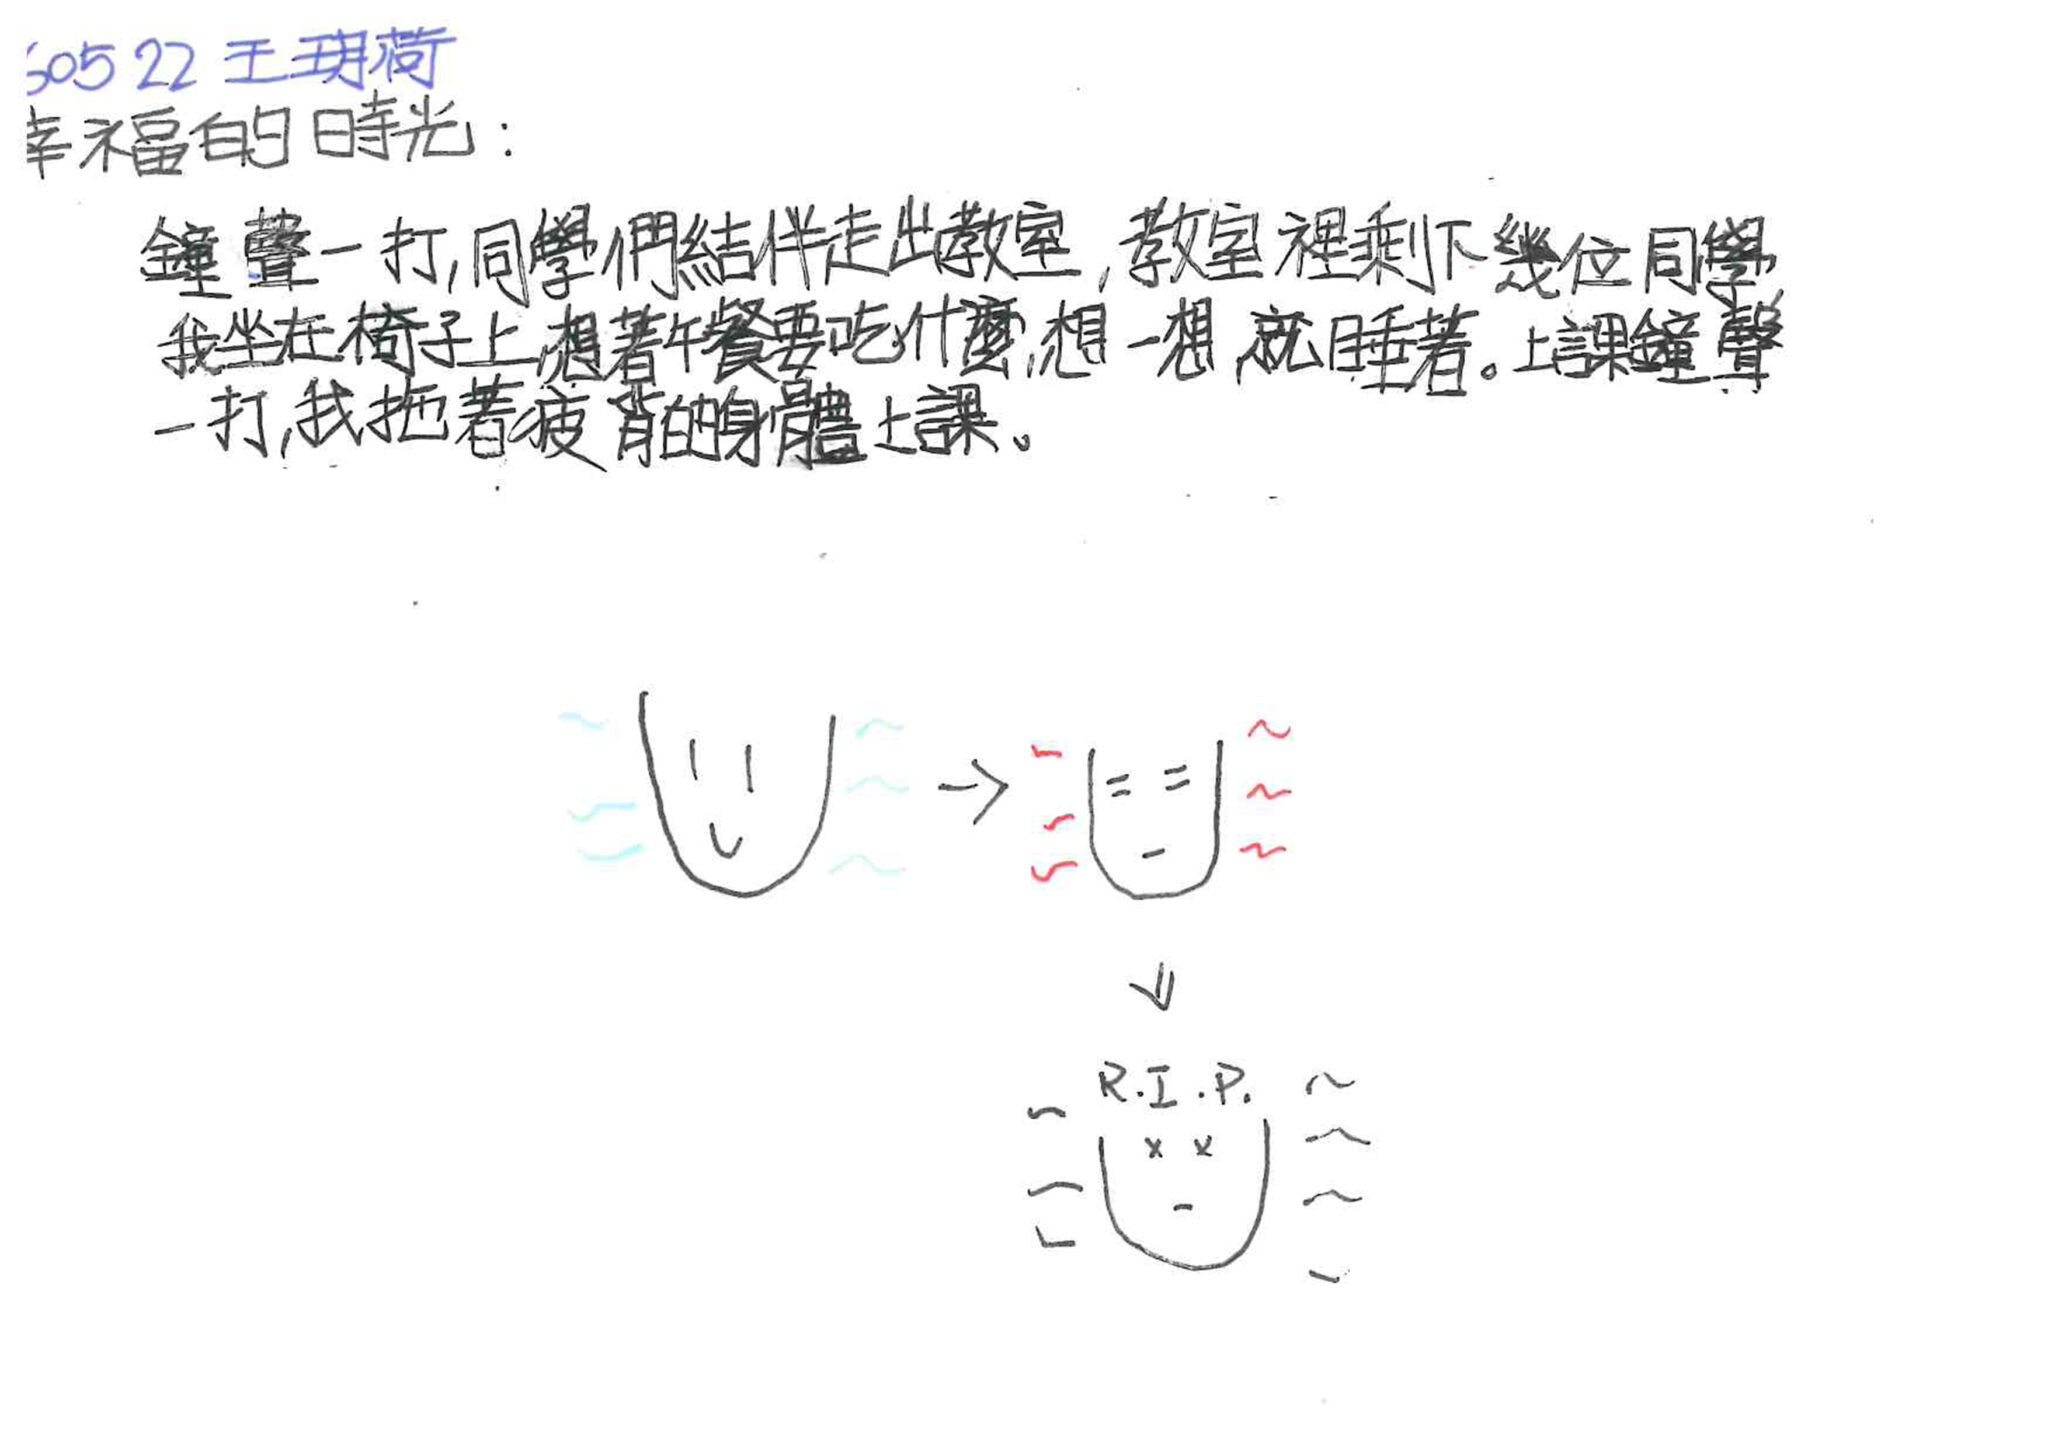 60522 王玥荷
幸福的時光:
鐘聲一打,同學們結伴走出教室,教室裡剩下幾位同學,
我坐在椅子上,想著午餐要吃什麼,想一想,就睡著。上課鐘聲
一打,我拖著疲背的身體上課。
R.I.P.